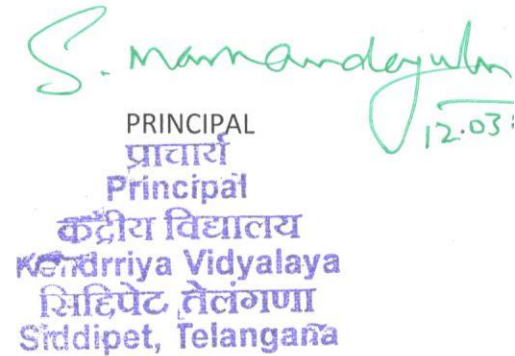 S.
12.03
PRINCIPAL
प्राचार्य
Principal
केंद्रीय विद्यालय
Kendrriya Vidyalaya
सिद्दिपेट, तेलंगाणा
Siddipet, Telangana